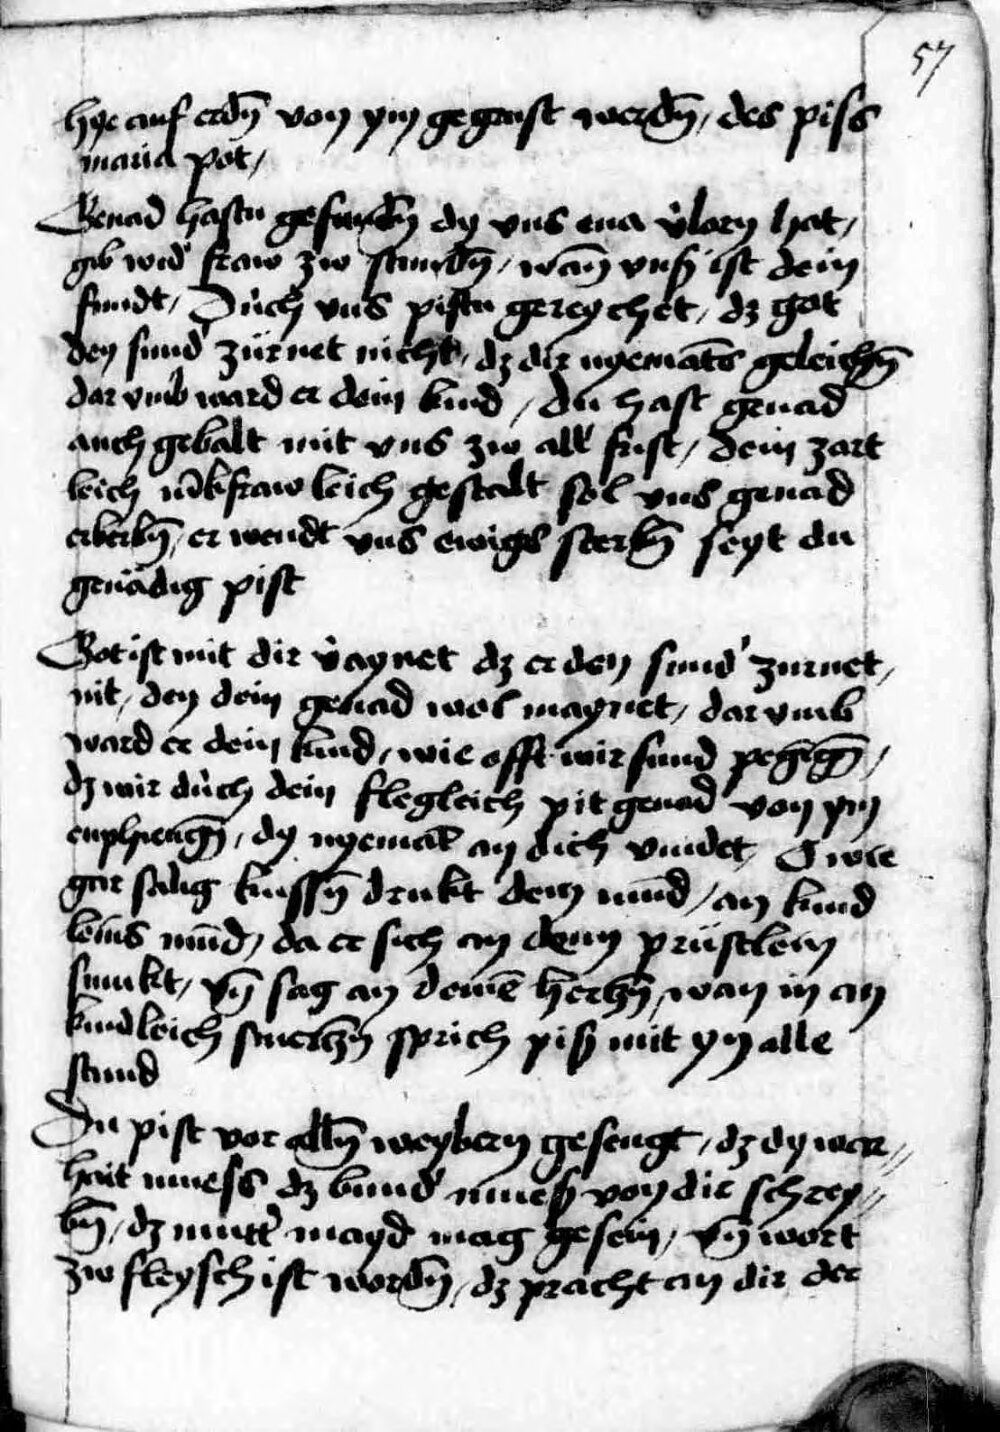 57
hye auf erdn̄ von ym gegrust werdn̄, des piss
maria pot,
Genad hastu gefundn̄ dy vns eua v̉lorn hat,
gib wid̉ fraw zw stundn̄, wan̄ vnß ist dein
fundt, Du̇ch vns pistu gereychet, dz got
den sund̉ zürnet nicht, dz dir nyemāts geleichn̄
dar vmb ward er dein kind, du hast genad
auch gebalt mit vns zw all̉ frist, dein zart
leich iūkfraw leich gestalt sol vns genad
erberbn̄, er wendt vns ewigs sterbn̄ seyt du
genadig pist
Got ist mit dir v̉aynet dz er den sund̉ zurnet,
nit, den dein genad wol maynet, dar vmb
ward er dein kind, wie offt wir sund pegengn̄,
dz wir du̇ch dein flegleich pit genad von ym
enphiengn̄, dy nyemāt an dich vindet, O wie
gar salig kussn̄ drukt dein mūnd, an kind
leins mūnd, da er sich an deim prüstlein
smukt, vn̄ sag an deinē hertzn̄, wan in an
kindleich smertzn̄ sprich piß mit ym alle
stund
Du pist vor alln̄ weybern gesengt, dz dy war
hait muess dz bund̉ mueß von dir schrey
bn̄, dz mutt̉ mayd mag gesein, vn̄ wort
zw fleysch ist wordn̄, dz pracht an dir der